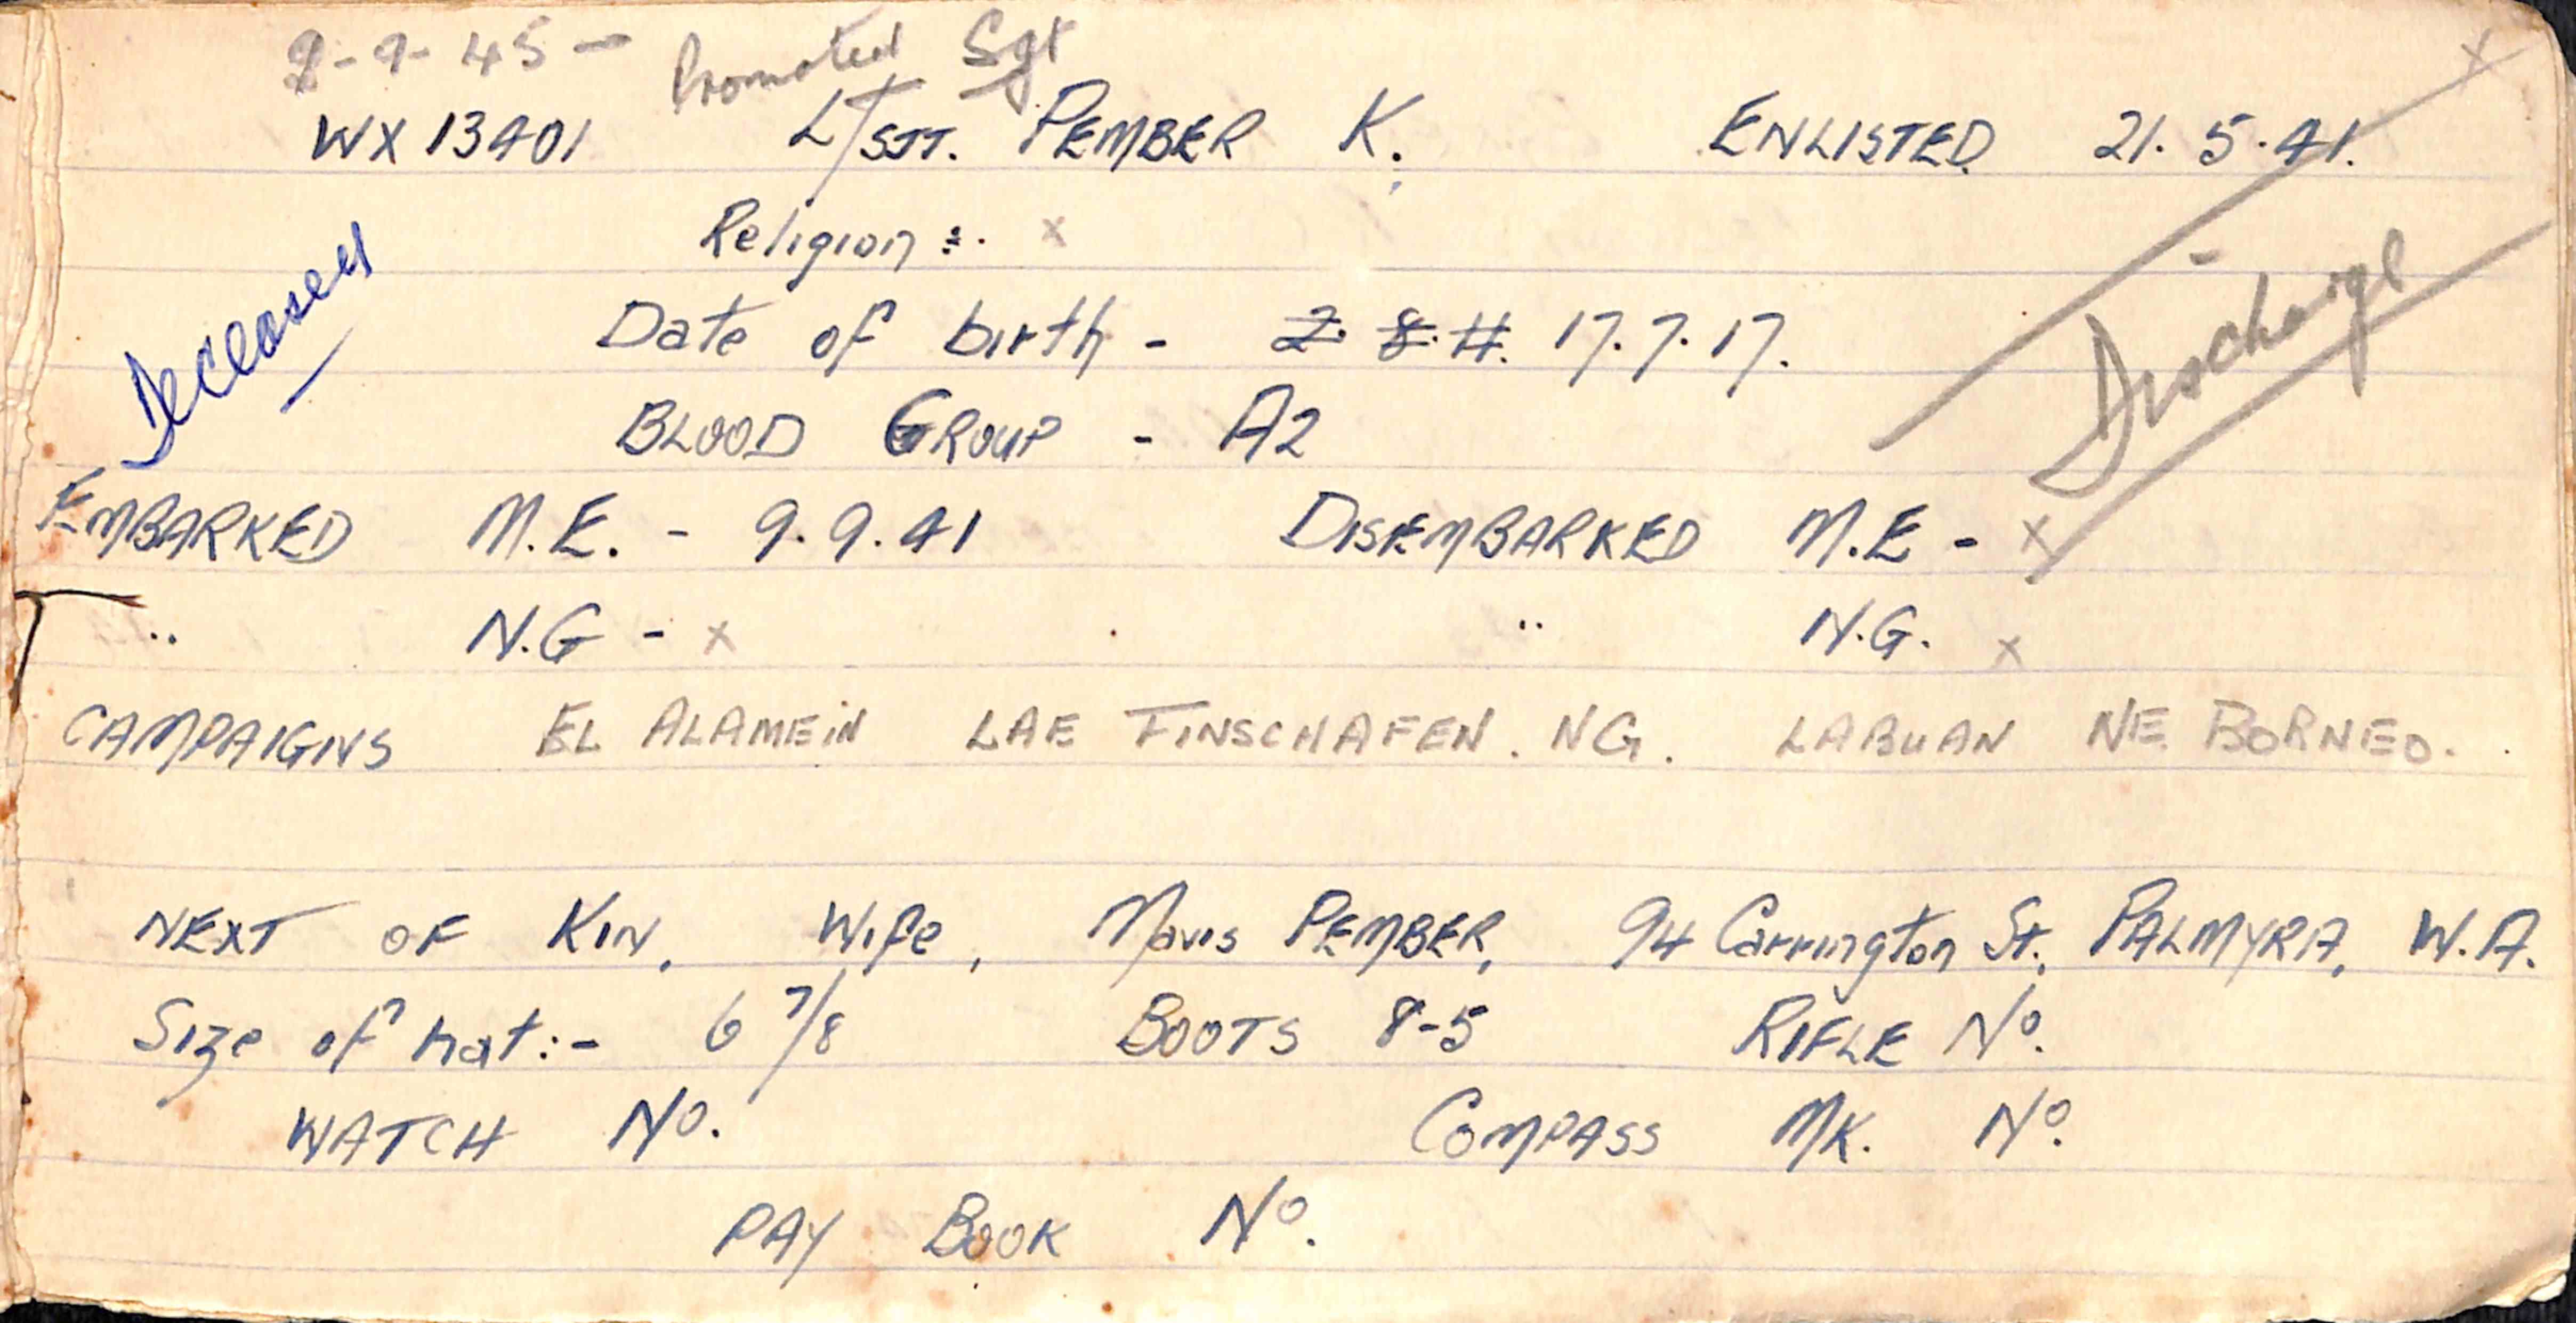 2-9-45 - Promoted Sgt
WX 13401 L/SJT. PEMBER K. ENLISTED 21.5.41.
Religion :. x
Deceased
Date of birth - 2. 8. 17.7.17.
Discharge
BLOOD GROUP - A2
EMBARKED M.E. - 9.9.41 DISEMBARKED M.E - x
" N.G - x " N.G. x
CAMPAIGNS EL ALAMEiN LAE FINSCHAFEN. NG. LABUAN NE BORNEO.
NEXT OF KIN, Wife, Mavis PEMBER, 94 Carrington St., PALMYRA, W.A.
Size of hat:- 6 7/8 BOOTS 8-5 RIFLE No.
WATCH No. COMPASS MK. No.
PAY BOOK No.